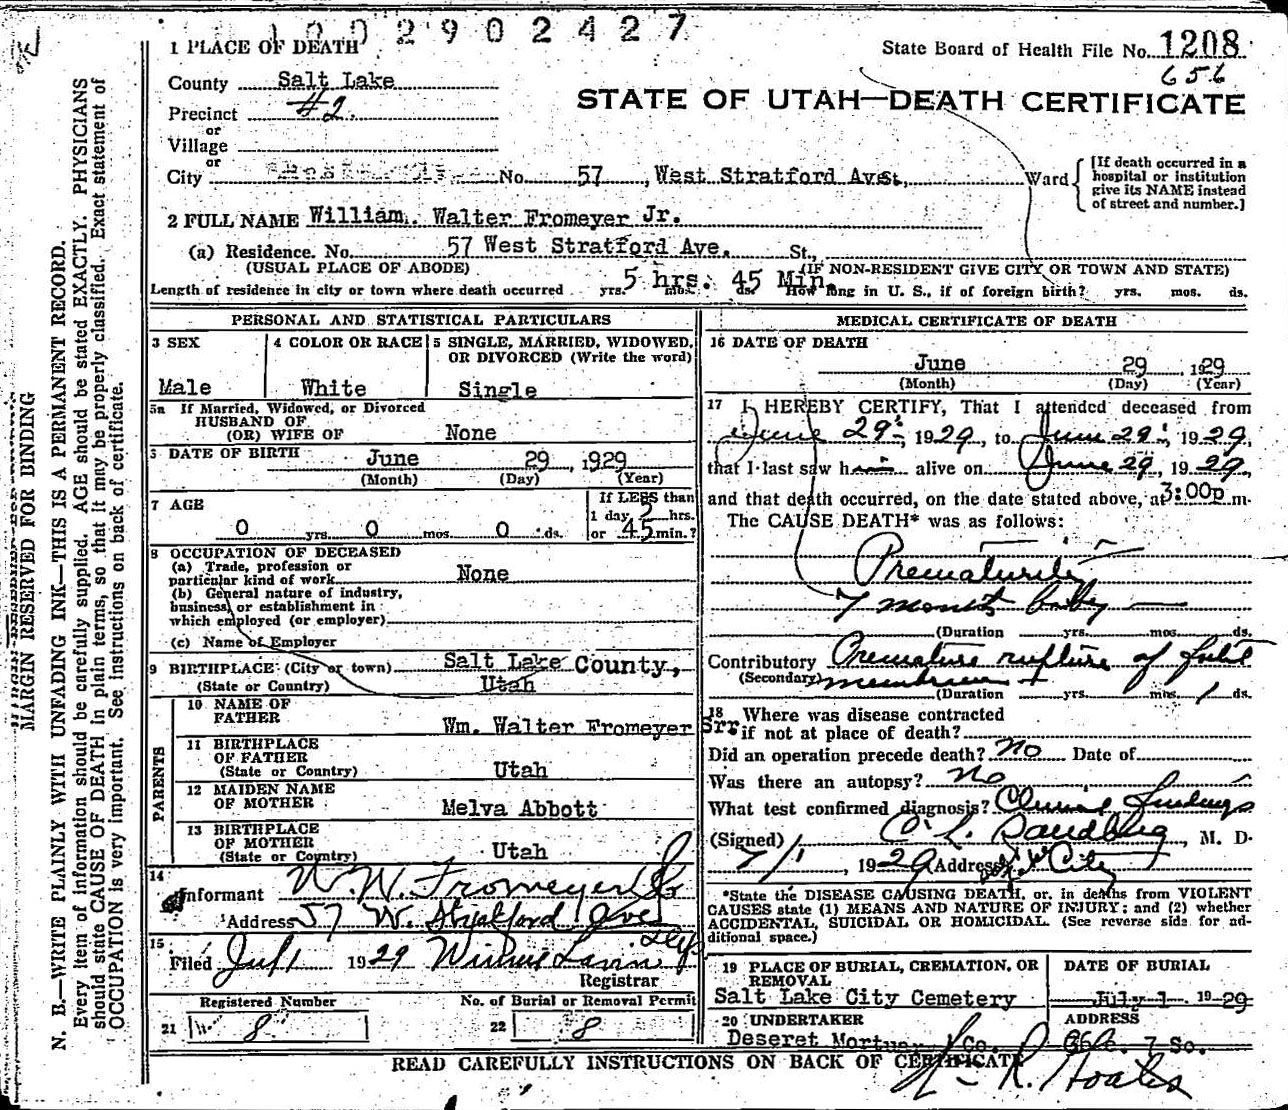 1002902427
1 PLACE OF DEATH
State Board of Health File No. 1208
656
County Salt Lake
STATE OF UTAH—DEATH CERTIFICATE
Precinct #2.
or
Village
or
City No. 57, West Stratford Ave St., Ward [If death occurred in a hospital or institution give its NAME instead of street and number.]
2 FULL NAME William. Walter Fromeyer Jr.
(a) Residence. No. 57 West Stratford Ave. St.,
(USUAL PLACE OF ABODE) (IF NON-RESIDENT GIVE CITY OR TOWN AND STATE)
Length of residence in city or town where death occurred yrs. 5 hrs. mos. 45 Min. ds. How long in U. S., if of foreign birth? yrs. mos. ds.
PERSONAL AND STATISTICAL PARTICULARS
3 SEX
Male
4 COLOR OR RACE
White
5 SINGLE, MARRIED, WIDOWED, OR DIVORCED (Write the word)
Single
5a If Married, Widowed, or Divorced
HUSBAND OF
(OR) WIFE OF None
6 DATE OF BIRTH June 29, 1929
(Month) (Day) (Year)
7 AGE
0 yrs. 0 mos. 0 ds.
If LESS than
1 day hrs.
or 45 min.?
8 OCCUPATION OF DECEASED
(a) Trade, profession or
particular kind of work None
(b) General nature of industry,
business, or establishment in
which employed (or employer)
(c) Name of Employer
9 BIRTHPLACE (City or town) Salt Lake County,
(State or Country) Utah
PARENTS
10 NAME OF
FATHER Wm. Walter Fromeyer Srr.
11 BIRTHPLACE
OF FATHER
(State or Country) Utah
12 MAIDEN NAME
OF MOTHER Melva Abbott
13 BIRTHPLACE
OF MOTHER
(State or Country) Utah
14
Informant W. W. Fromeyer Sr
Address 57 W. Stratford Ave
15
Filed Jul 1 1929
Registrar
Registered Number
21 8
No. of Burial or Removal Permit
22 8
MEDICAL CERTIFICATE OF DEATH
16 DATE OF DEATH
June 29, 1929
(Month) (Day) (Year)
17 I HEREBY CERTIFY, That I attended deceased from
June 29, 1929, to June 29, 1929,
that I last saw him alive on June 29, 1929,
and that death occurred, on the date stated above, at 3:00p m.
The CAUSE DEATH* was as follows:
Prematurity
7 months baby
(Duration yrs. mos. ds.
Contributory Premature rupture of
(Secondary) membranes
(Duration yrs. mos. 1 ds.
18 Where was disease contracted
if not at place of death?
Did an operation precede death? No Date of
Was there an autopsy? No
What test confirmed diagnosis? Clinical findings
(Signed) C. L. Sandberg, M. D.
7/1, 1929 Address City
*State the DISEASE CAUSING DEATH, or, in deaths from VIOLENT
CAUSES state (1) MEANS AND NATURE OF INJURY; and (2) whether
ACCIDENTAL, SUICIDAL OR HOMICIDAL. (See reverse side for ad-
ditional space.)
19 PLACE OF BURIAL, CREMATION, OR
REMOVAL
Salt Lake City Cemetery
DATE OF BURIAL
July 1. 1929
20 UNDERTAKER
Deseret Mortuary Co.
ADDRESS
36 E. 7 So.
READ CAREFULLY INSTRUCTIONS ON BACK OF CERTIFICATE
MARGIN RESERVED FOR BINDING
N. B.—WRITE PLAINLY WITH UNFADING INK—THIS IS A PERMANENT RECORD.
Every item of information should be carefully supplied. AGE should be stated EXACTLY. PHYSICIANS
should state CAUSE OF DEATH in plain terms, so that it may be properly classified. Exact statement of
OCCUPATION is very important. See instructions on back of certificate.